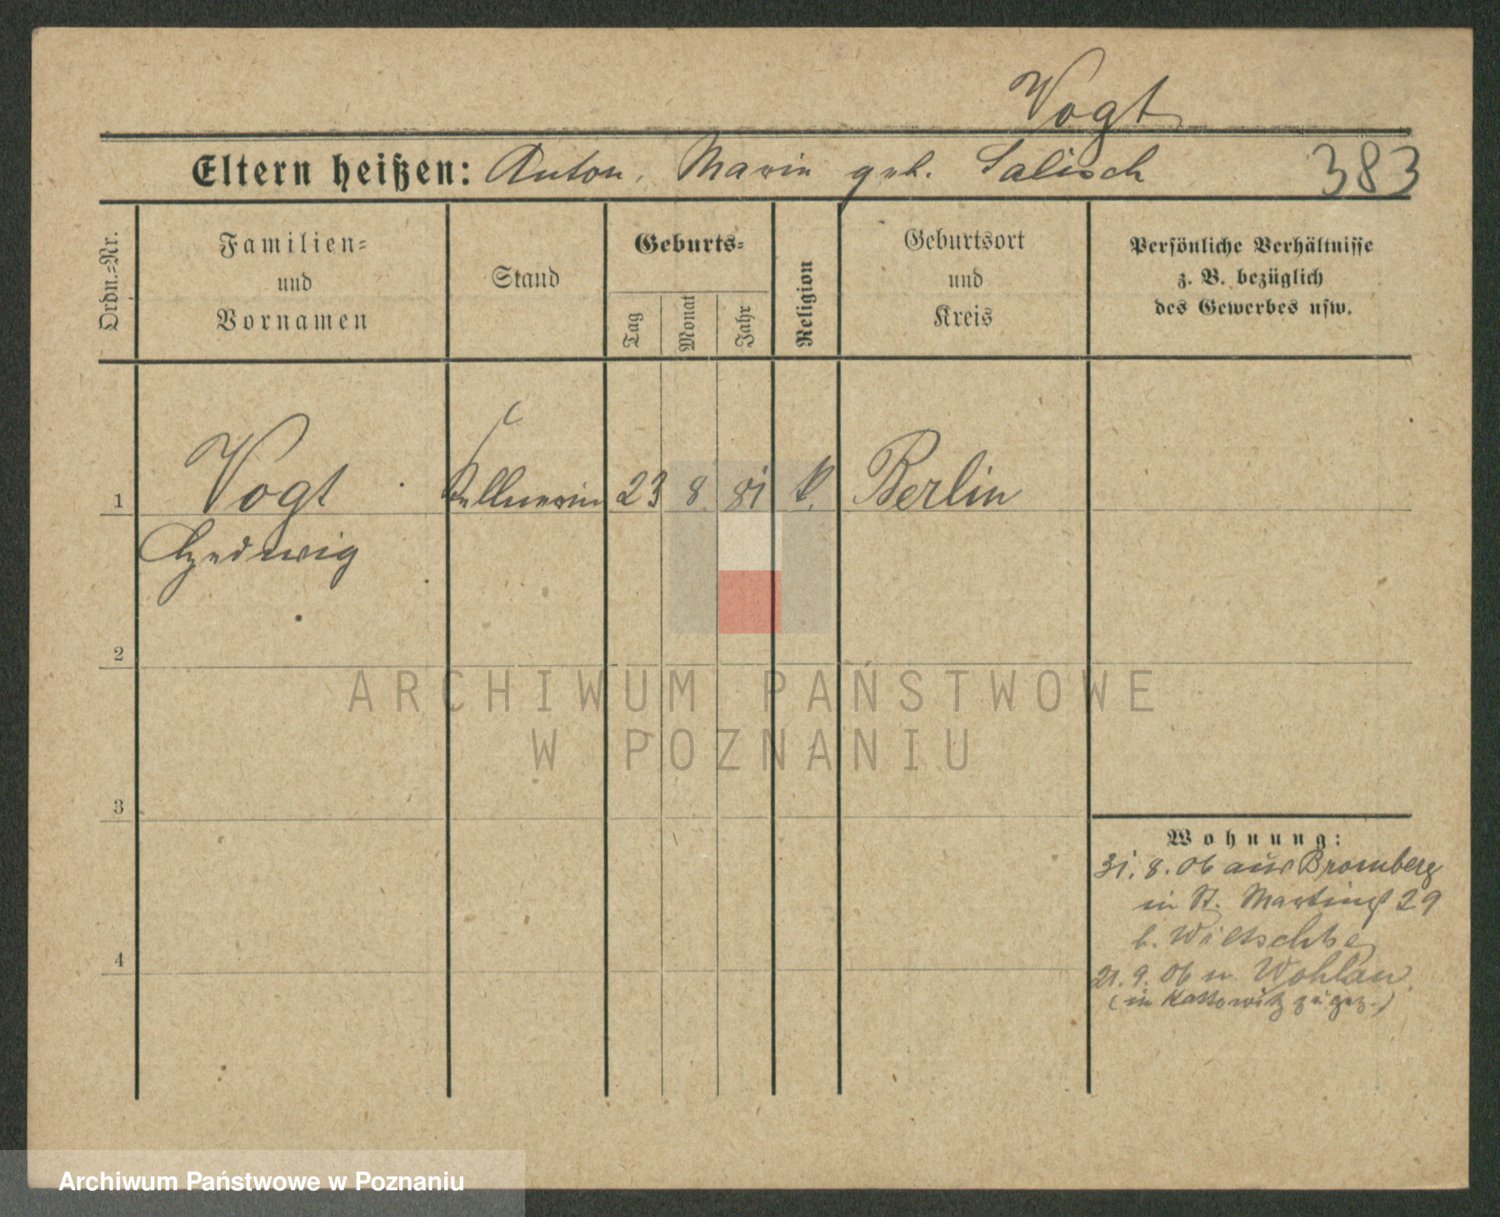 Vogt
Eltern heißen: Anton, Marie geb. Salisch
383
Ordn.=Nr.
Familien=
und
Vornamen
Stand
Geburts=
Tag
Monat
Jahr
Religion
Geburtsort
und
Kreis
Persönliche Verhältnisse
z. B. bezüglich
des Gewerbes usw.
1 Vogt Kellnerin 23 8. 81 k. Berlin
Hedwig
2
3
4
Wohnung:
31. 8. 06 aus Bromberg
in St. Martinst 29
b.
21. 9. 06 n. Wohlau.
(in Kattowitz zugez.)
ARCHIWUM PAŃSTWOWE
W POZNANIU
Archiwum Państwowe w Poznaniu